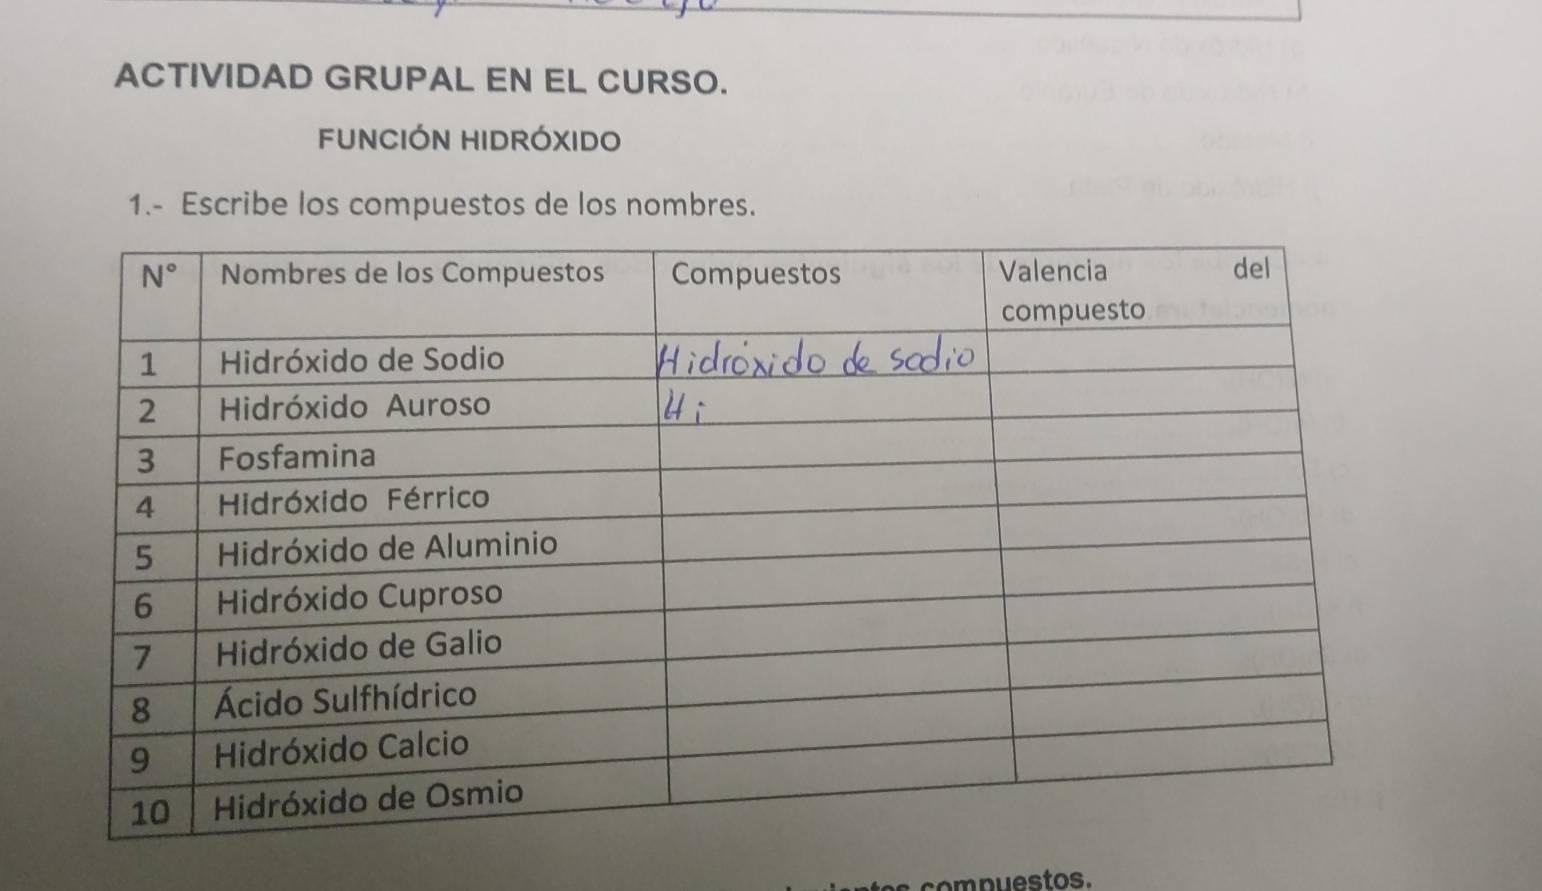 ACTIVIDAD GRUPAL EN EL CURSO.
FUNCIÓN HIDRÓXIDO
1.- Escribe los compuestos de los nombres.
N° Nombres de los Compuestos Compuestos Valencia del
compuesto
1 Hidróxido de Sodio Hidróxido de sodio
2 Hidróxido Auroso Hi
3 Fosfamina
4 Hidróxido Férrico
5 Hidróxido de Aluminio
6 Hidróxido Cuproso
7 Hidróxido de Galio
8 Ácido Sulfhídrico
9 Hidróxido Calcio
10 Hidróxido de Osmio
compuestos.